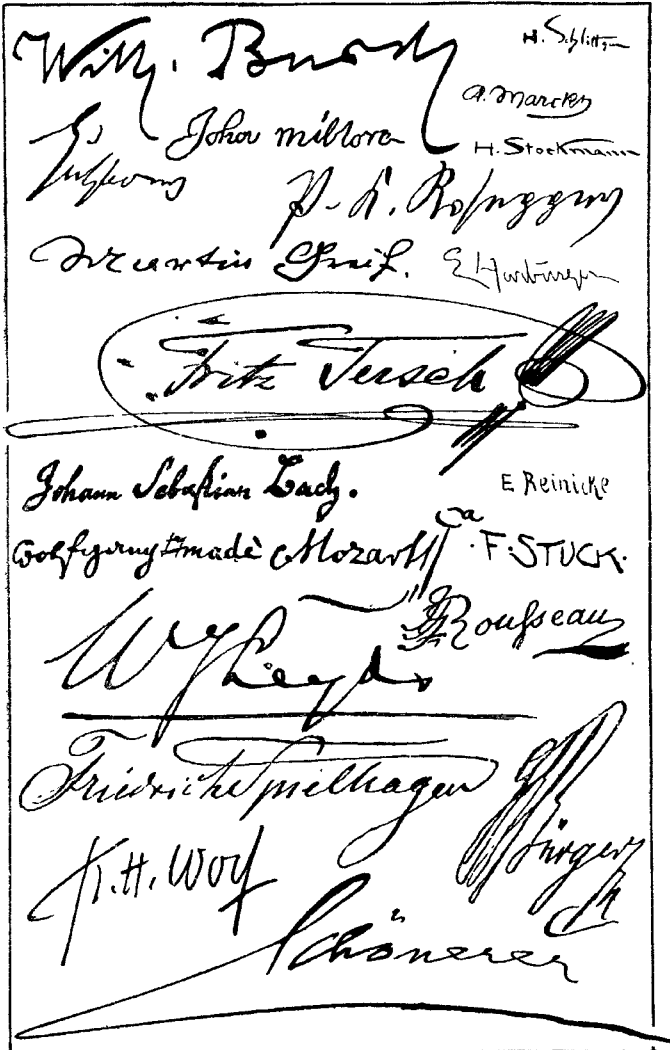 Wilh. Busch
H. Schlittgen
A. Marcks
John Miltora
H. Stockmann
P. K. Rosegger
Martin Greif.
E Harburger
Fritz Jersch
Johann Sebastian Bach.
E Reinicke
Wolfgang Amadè Mozart
F. STUCK.
JJRousseau
W J Leyds
Friedrich Spielhagen
Bürger
K. H. Wolf
Schönerer